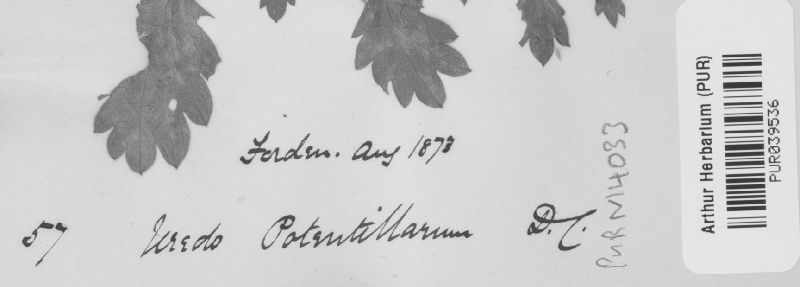 Forden. Aug 1873
57 Uredo Potentillarum D.C.
PUR N14033
Arthur Herbarium (PUR)
PUR039536